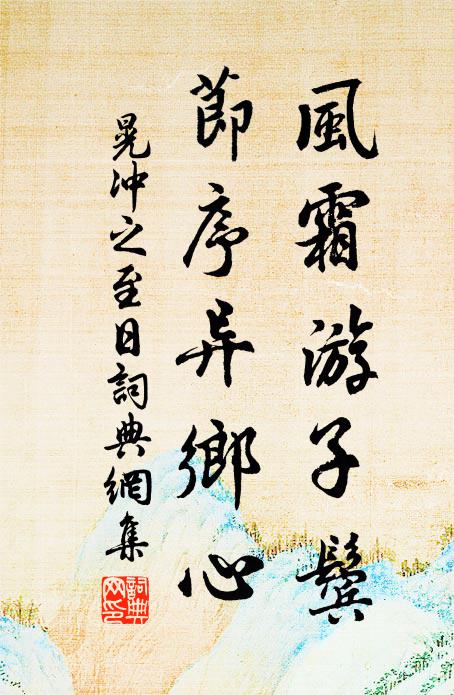 風霜游子鬢
節序异鄉心
晁冲之至日詞典網集